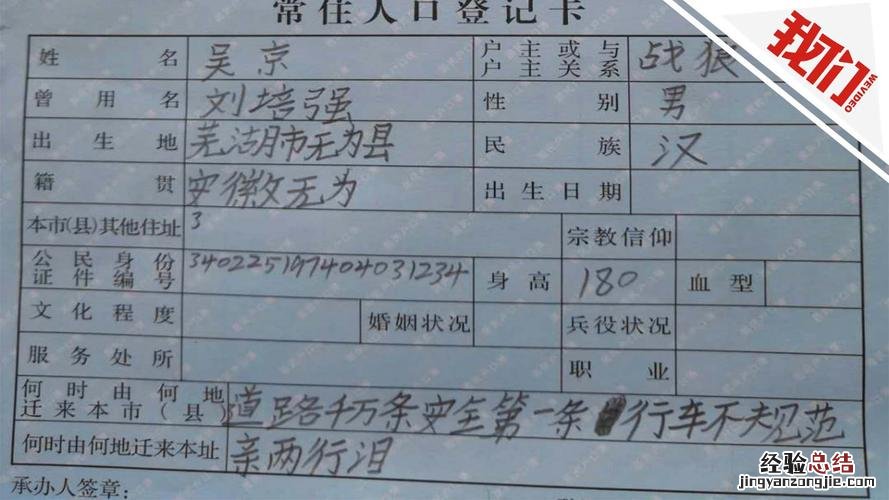 常住人口登记卡
我们
WEVIDEO
姓名 吴京 户主或与户主关系 战狼
曾用名 刘培强 性别 男
出生地 芜湖市无为县 民族 汉
籍贯 安徽无为 出生日期
本市(县)其他住址 3 宗教信仰
公民身份证件编号 340225197404031234 身高 180 血型
文化程度 婚姻状况 兵役状况
服务处所 职业
何时由何地迁来本市(县) 道路千万条安全第一条 行车不规范
何时由何地迁来本址 亲两行泪
承办人签章:
经验总结
jingyanzongjie.com